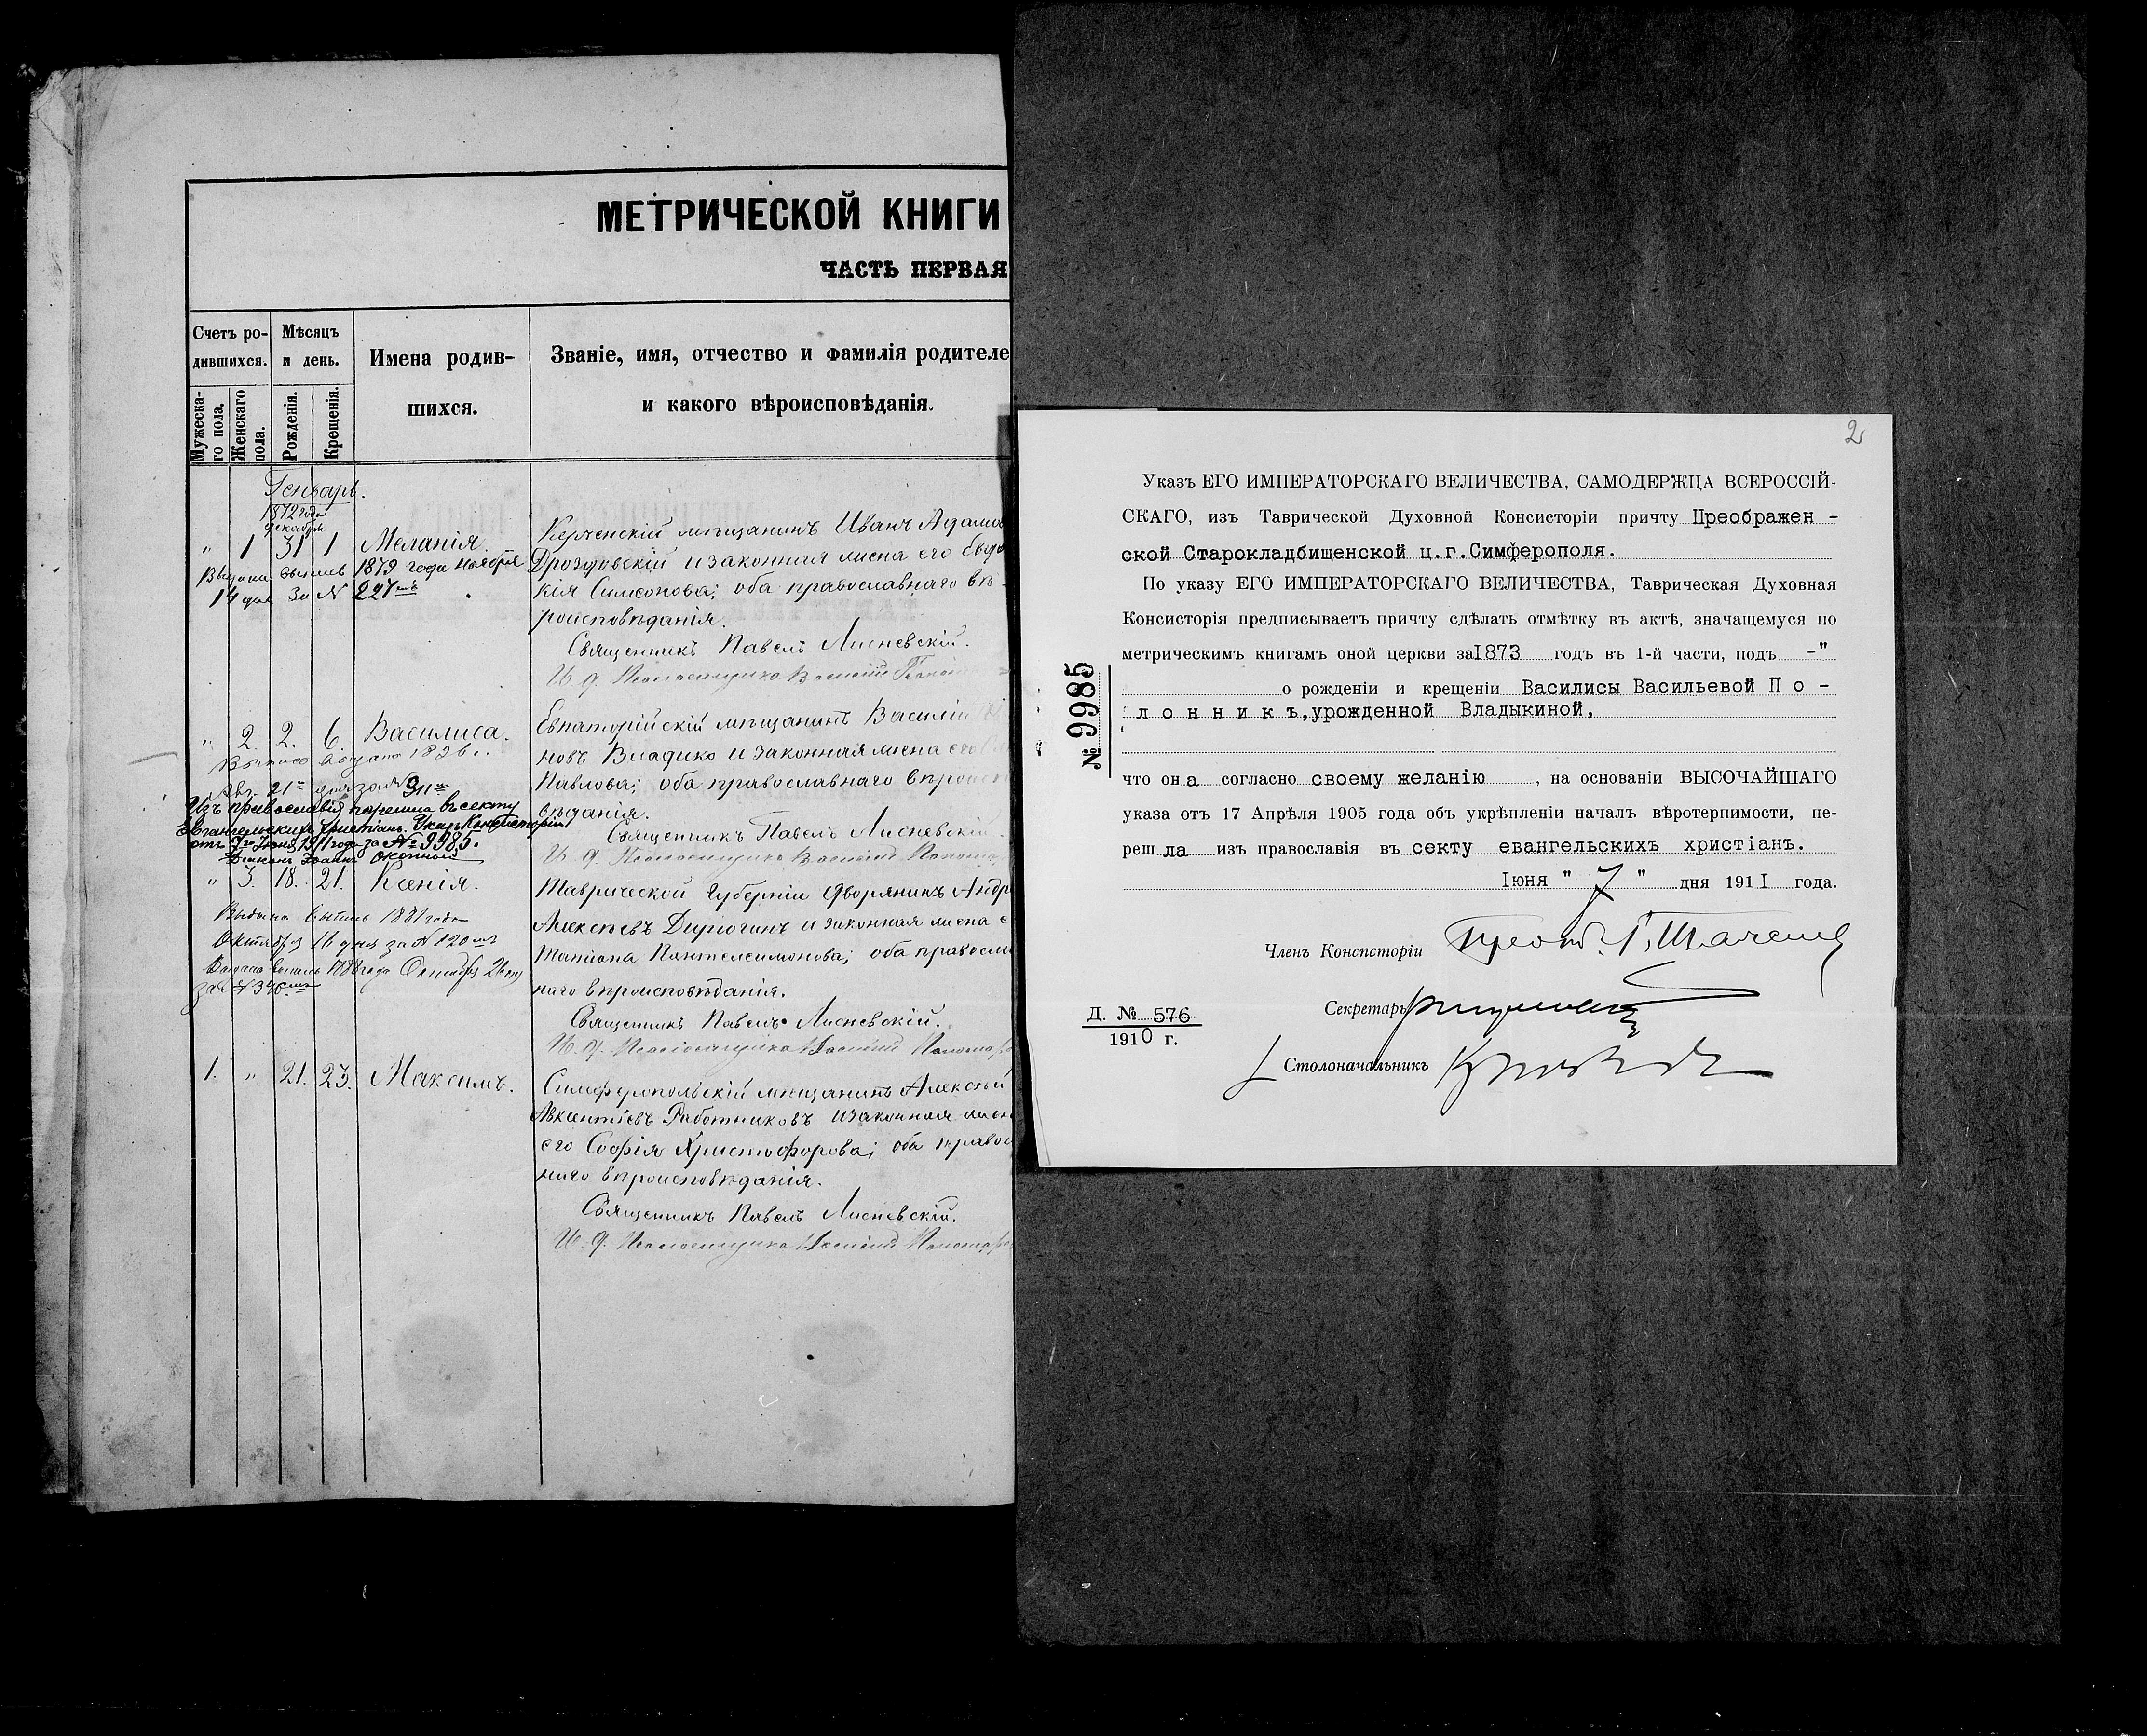 МЕТРИЧЕСКОЙ КНИГИ
ЧАСТЬ ПЕРВАЯ
Счетъ ро-
дившихся.
Мужеска-
го пола.
Женскаго
пола.
Мѣсяцъ
и день.
Рожденія.
Крещенія.
Имена родив-
шихся.
Званіе, имя, отчество и фамилія родителе
и какого вѣроисповѣданія.
Генварь.
1872 года
декабря
" 1 31 1 Меланія.
Выдана выпись 1879 года Ноября
14 дня За № 227
Керченскій мѣщанинъ Иванъ Адамов
Дроздовскій и законная жена его Евдо
кія Симеонова; оба православнаго вѣ-
роисповѣданія.
Священникъ Павелъ Лисневскій.
И. д. Псаломщика Василій
" 2. 2. 6. Василиса.
Авг. 21 дня за № 911
Изъ православія перешла въ секту
Евангельскихъ христіанъ. Указъ Консисторіи
отъ 7го Іюня 1911 года за № 9985.
Діаконъ Іоаннъ
Евпаторійскій мѣщанинъ Василій
новъ Владико и законная жена его
Павлова; оба православнаго вѣроиспо
вѣданія.
Священникъ Павелъ Лисневскій.
И. д. Псаломщика Василій
" 3. 18. 21. Ксенія.
Выдана выпись 1881 года
Октября 16 дня за № 120
Выдана выпись 1888 года
за № 346
Таврической Губерніи Дворянинъ Андр
Алексѣевъ Дирюгинъ и законная жена е
Татіана Пантелеимонова; оба правосла
наго вѣроисповѣданія.
Священникъ Павелъ Лисневскій.
И. д. Псаломщика Василій
1. " 21. 23. Максимъ.
Симферопольскій мѣщанинъ Алексѣй
Авксентіевъ Работниковъ и законная жен
его Софія Христофорова; оба правос
наго вѣроисповѣданія.
Священникъ Павелъ Лисневскій.
И. д. Псаломщика Василій
2
Указъ ЕГО ИМПЕРАТОРСКАГО ВЕЛИЧЕСТВА, САМОДЕРЖЦА ВСЕРОССІЙ-
СКАГО, изъ Таврической Духовной Консисторіи причту Преображен -
ской Старокладбищенской ц.г.Симферополя.
По указу ЕГО ИМПЕРАТОРСКАГО ВЕЛИЧЕСТВА, Таврическая Духовная
Консисторія предписываетъ причту сдѣлать отмѣтку въ актѣ, значащемуся по
метрическимъ книгамъ оной церкви за 1873 годъ въ 1-й части, подъ -"
о рожденіи и крещеніи Василисы Васильевой П о -
л о н н и к ъ, урожденной Владыкиной,
что она согласно своему желанію, на основаніи ВЫСОЧАЙШАГО
указа отъ 17 Апрѣля 1905 года объ укрѣпленіи началъ вѣротерпимости, пе-
решла изъ православія въ секту евангельскихъ христіанъ.
Іюня " 7 " дня 1911 года.
№ 9985
Членъ Консисторіи
Секретарь
Д. № 576
1910 г.
Столоначальникъ